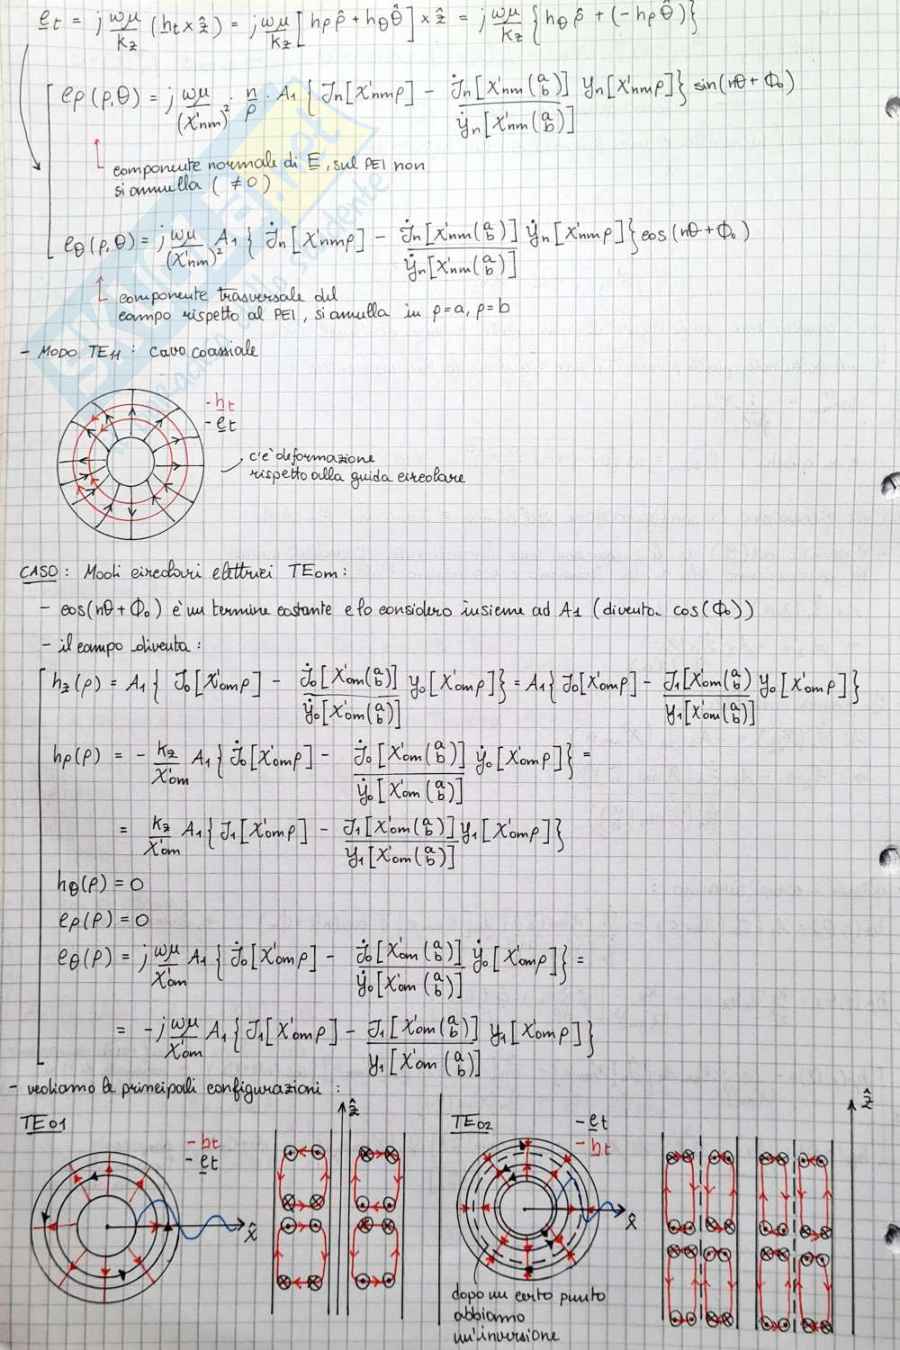 e̲t = j ωμ/kz (h̲t × ẑ) = j ωμ/kz [hρ ρ̂ + hθ θ̂] × ẑ = j ωμ/kz {hθ ρ̂ + (-hρ θ̂)}
eρ(ρ,θ) = j ωμ/(χ'nm)² · n/ρ · A1 { Jn[χ'nmρ] - J̇n[χ'nm(a/b)]/Ẏn[χ'nm(a/b)] Yn[χ'nmρ]} sin(nθ+Φ0)
componente normale di E̲, sul PEI non
si annulla (≠0)
eθ(ρ,θ) = j ωμ/(χ'nm)² A1 { J̇n[χ'nmρ] - J̇n[χ'nm(a/b)]/Ẏn[χ'nm(a/b)] Ẏn[χ'nmρ]} cos(nθ+Φ0)
componente trasversale del
campo rispetto al PEI, si annulla in ρ=a, ρ=b
- MODO TE11 : cavo coassiale
- h̲t
- e̲t
c'è deformazione
rispetto alla guida circolare
CASO: Modi circolari elettrici TE0m:
- cos(nθ+Φ0) è un termine costante e lo considero insieme ad A1 (diventa cos(Φ0))
- il campo diventa:
hz(ρ) = A1{ J0[χ'0mρ] - J̇0[χ'0m(a/b)]/Ẏ0[χ'0m(a/b)] Y0[χ'0mρ]} = A1{ J0[χ'0mρ] - J1[χ'0m(a/b)]/Y1[χ'0m(a/b)] Y0[χ'0mρ]}
hρ(ρ) = - kz/χ'0m A1{ J̇0[χ'0mρ] - J̇0[χ'0m(a/b)]/Ẏ0[χ'0m(a/b)] Ẏ0[χ'0mρ]} =
= kz/χ'0m A1{ J1[χ'0mρ] - J1[χ'0m(a/b)]/Y1[χ'0m(a/b)] Y1[χ'0mρ]}
hθ(ρ) = 0
eρ(ρ) = 0
eθ(ρ) = j ωμ/χ'0m A1{ J̇0[χ'0mρ] - J̇0[χ'0m(a/b)]/Ẏ0[χ'0m(a/b)] Ẏ0[χ'0mρ]} =
= -j ωμ/χ'0m A1{ J1[χ'0mρ] - J1[χ'0m(a/b)]/Y1[χ'0m(a/b)] Y1[χ'0mρ]}
- vediamo le principali configurazioni :
TE01
- h̲t
- e̲t
x̂
ẑ
TE02
- e̲t
- h̲t
x̂
ẑ
dopo un certo punto
abbiamo
un'inversione